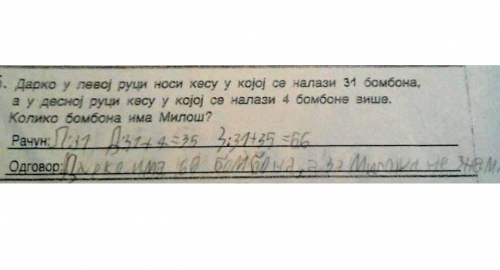 5. Дарко у левој руци носи кесу у којој се налази 31 бомбона,
а у десној руци кесу у којој се налази 4 бомбоне више.
Колико бомбона има Милош?
Рачун: Л:31 Д:31+4=35 З:31+35=66
Одговор: Дарко има 66 бомбона, а за Милоша не знам